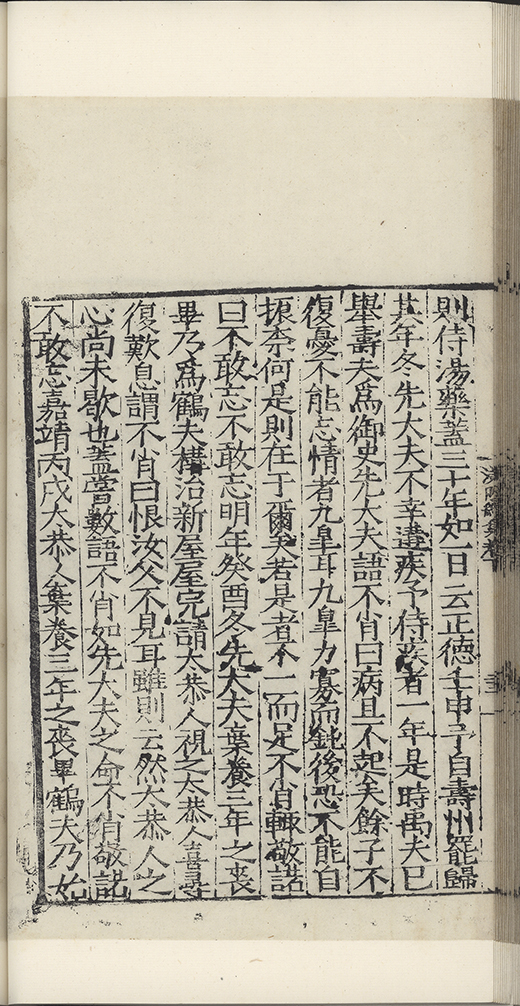 則侍湯藥蓋三十年如一日云正德壬申予自壽州罷歸
其年冬先大夫不幸遘疾予侍疾者一年是時禺夫已
舉壽夫爲御史先大夫語不肖曰病且不起矣餘子不
復憂不能忘情者九臯耳九臯力寡而鈍後恐不能自
振柰何是則在丁爾夫若是者不一而足不肖輙敬諾
曰不敢忘不敢忘明年癸酉冬先大夫棄養三年之喪
畢乃爲鶴夫構治新屋屋完請太恭人視之太恭人喜尋
復歎息謂不肖曰恨汝父不見耳雖則云然太恭人之
心尚未歇也蓋嘗數語不肖如先大夫之命不肖敬諾
不敢忘嘉靖丙戌太恭人棄養三年之喪畢鶴夫乃始